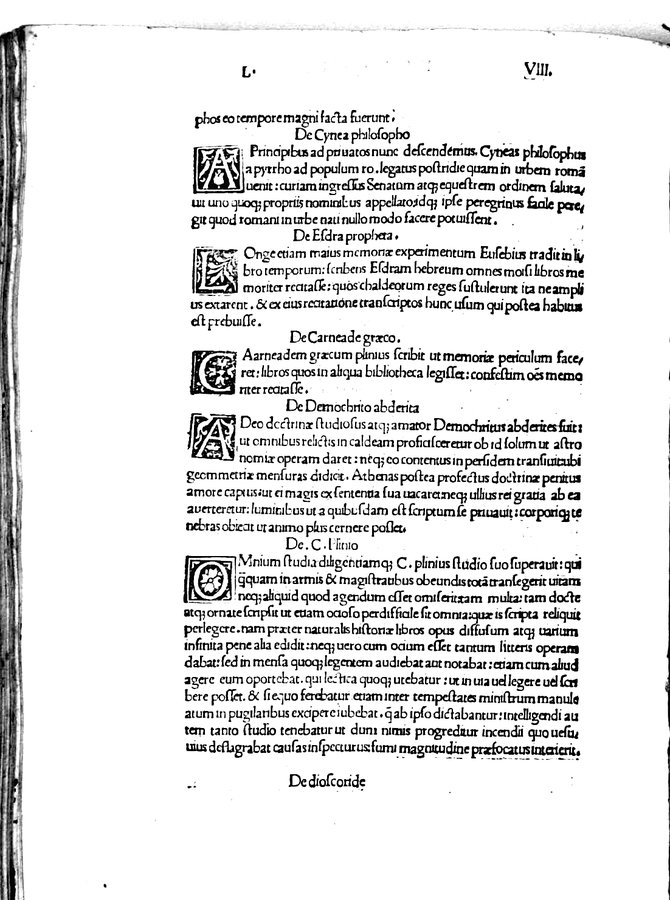 L. VIII.
phos eo tempore magni facta fuerunt.
De Cynea philosopho
A Principibus ad priuatos nunc descendemus. Cyneas philosophus
a pyrrho ad populum ro. legatus postridie quam in urbem romã
uenit: curiam ingressus Senatum atq; equestrem ordinem saluta,
uit uno quoq; propriis nominibus appellato: idq; ipse peregrinus facile pere,
git quod romani in urbe nati nullo modo facere potuissent.
De Esdra propheta.
LOnge etiam maius memoriæ experimentum Eusebius tradit in li,
bro temporum: scribens Esdram hebreum omnes mosi libros me
moriter recitasse: quos chaldeorum reges sustulerunt ita ne ampli
us extarent. & ex eius recitatione transcriptos hunc usum qui postea habitus
est prebuisse.
De Carneade græco.
CAarneadem græcum plinius scribit ut memoriæ periculum face,
ret: libros quos in aliqua bibliotheca legisset: confestim oẽs memo
riter recitasse.
De Demochrito abderita
ADeo doctrinæ studiosus atq; amator Demochritus abderites fuit:
ut omnibus relictis in caldeam proficisceretur ob id solum ut astro
nomiæ operam daret: neq; eo contentus in persidem transiuit: ubi
geommetriæ mensuras didicit. Athenas postea profectus doctrinæ penitus
amore captus: ut ei magis ex sententia sua uacaret: neq; ullius rei gratia ab ea
auerteretur: luminibus ut a quibusdam est scriptum se priuauit: corporiq; te
nebras obiecit ut animo plus cernere posset.
De. C. Plinio
OMnium studia diligentiamq; C. plinius studio suo superauit: qui
q̃quam in armis & magistratibus obeundis totã transegerit uitam
neq; aliquid quod agendum esset omiserit: tam multa: tam docte
atq; ornate scripsit ut etiam ocioso perdifficile sit omnia: quæ is scripta reliquit
perlegere. nam præter naturalis historiæ libros opus diffusum atq; uarium
infinita pene alia edidit: neq; uero cum ocium esset tantum litteris operam
dabat: sed in mensa quoq; legentem audiebat aut notabat: etiam cum aliud
agere eum oportebat. qui lectica quoq; utebatur: ut in uia uel legere uel scri
bere posset. & si equo ferebatur etiam inter tempestates ministrum manule
atum in pugilaribus excipere iubebat. q̃ ab ipso dictabantur: intelligendi au
tem tanto studio tenebatur ut dum nimis progreditur incendii quo uesu,
uius deflagrabat causas inspecturus: fumi magnitudine præfocatus interierit.
De dioscoride